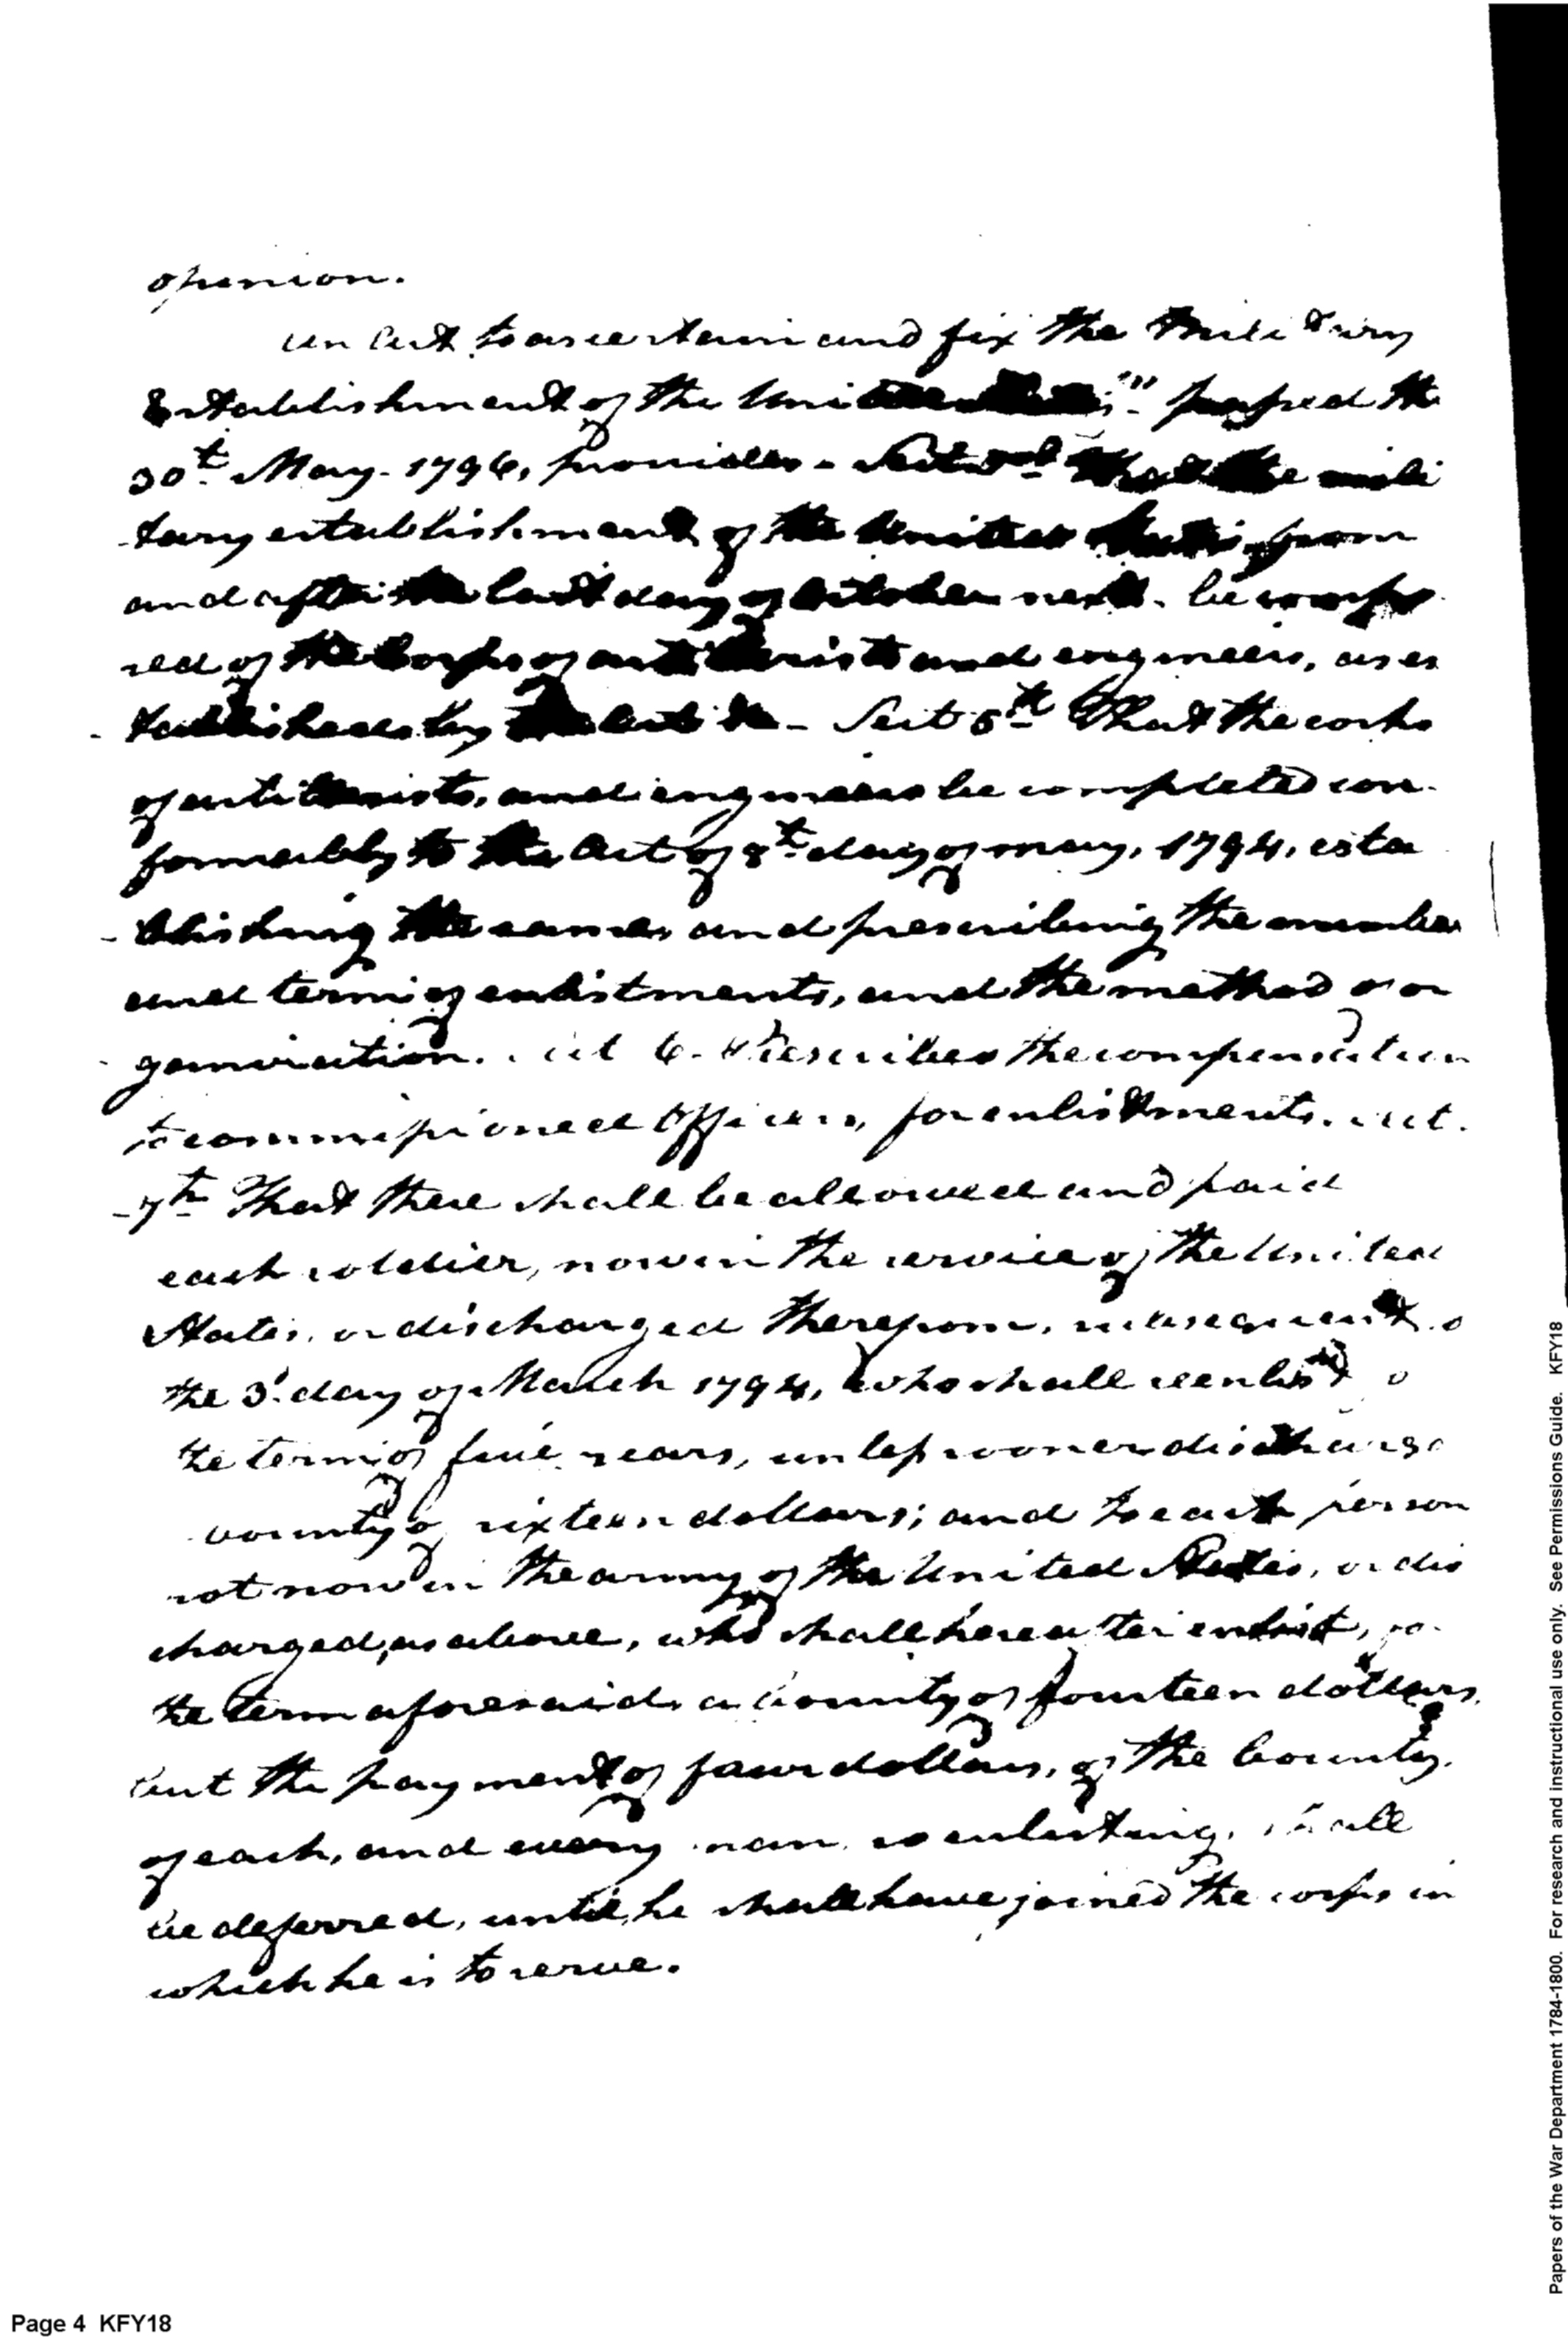 opinion.
an Act to ascertain and fix the Military
Establishment of the United States" passed the
30t. May. 1796, provides - Sect 2d That the mili
tary establishment of the United States, from
and after the last day of October next. be compo
sed of the Corps of artillerists and engineers, as es
-tablished by the Act &c - Sect 5th That the corps
of artillerists, and engineers be completed con-
formably to the Act of 8t day of may, 1794, esta
-blishing the same, and prescribing the number
and term of enlistments, and the method of or
-ganization. Sect 6. Prescribes the compensation
to commissioned Officers, for enlistments. Sect.
-7th That there shall be allowed and paid
each soldier, now in the service of the United
States, or discharged therefrom, subsequent to
the 3d. day of March 1794, who shall reenlist
the term of five years, unless sooner discharge
bounty of sixteen dollars; and to each person
not now in the army of the United States, or dis
charged, as above, who shall hereafter enlist, for
the term aforesaid, a bounty of fourteen dollars,
but the payment of four dollars, of the bounty,
of each, and every man, so enlisting, shall
be deferred, until he shall have joined the corps in
which he is to serve.
Page 4 KFY18
Papers of the War Department 1784-1800. For research and instructional use only. See Permissions Guide. KFY18